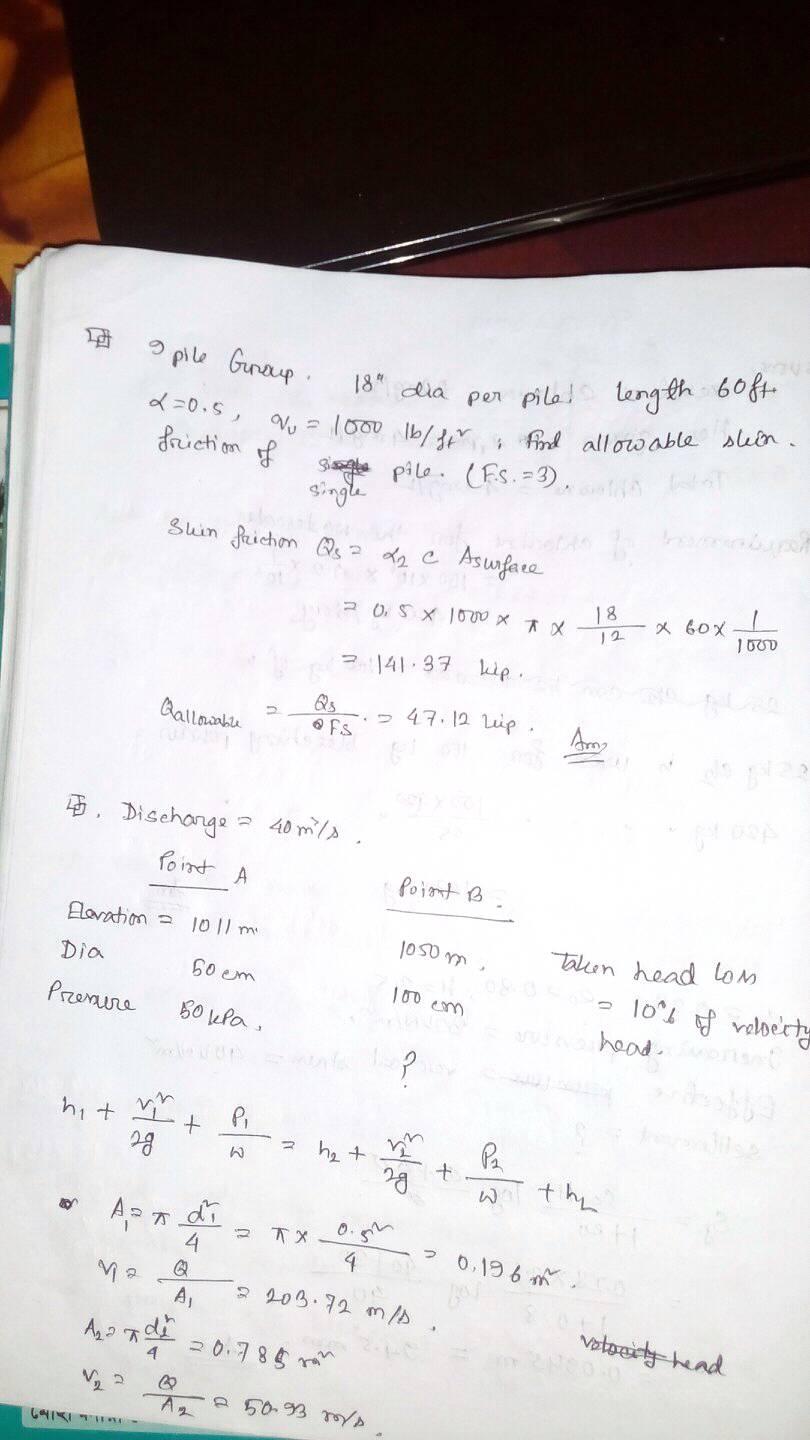 9 pile Group. 18" dia per pile! length 60ft
α=0.5, qu = 1000 lb/ft², find allowable skin
friction of single pile. (F.S.=3).
single
Skin friction Qs = α2 c Asurface
= 0.5 × 1000 × π × 18/12 × 60 × 1/1000
= 141.37 kip.
Qallowable = Qs/FS. = 47.12 kip. Ans
Discharge = 40 m³/s.
Point A Point B.
Elevation = 1011 m. 1050 m. Taken head loss
Dia 50 cm 100 cm = 10% of velocity
Pressure 50 kPa, ? head.
h1 + v1²/2g + P1/w = h2 + v2²/2g + P2/w + hL
A1 = π d1²/4 = π × 0.5²/4 = 0.196 m².
v1 = Q/A1 = 203.72 m/s.
A2 = π d2²/4 = 0.785 m² velocity head
v2 = Q/A2 = 50.93 m/s.